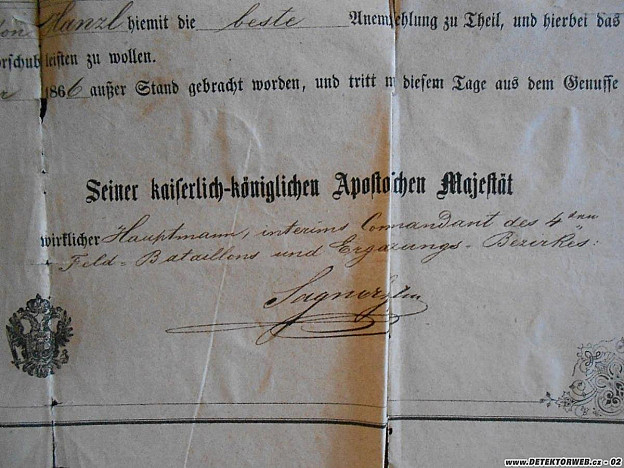 Hanzl hiemit die beste Anempfehlung zu Theil, und hierbei das
orschub leisten zu wollen.
1866 außer Stand gebracht worden, und tritt mit diesem Tage aus dem Genusse
Seiner kaiserlich-königlichen Apostolischen Majestät
wirklicher Hauptmann, interims Comandant des 4ten
Feld-Bataillons und Ergänzungs-Bezirkes:
www.DETEKTORWEB.cz - 02